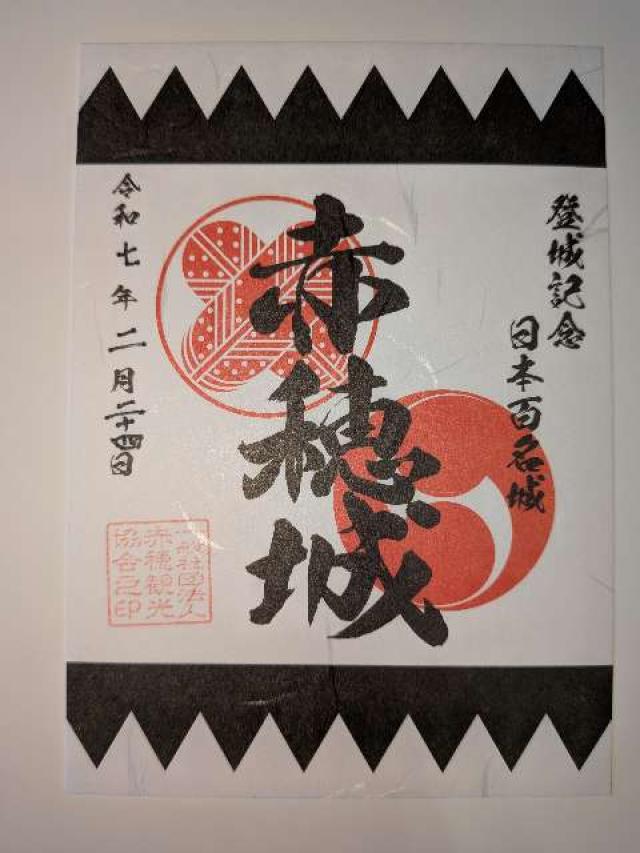 登城記念
日本百名城
赤穂城
令和七年二月二十四日
一般社団法人
赤穂観光
協会之印